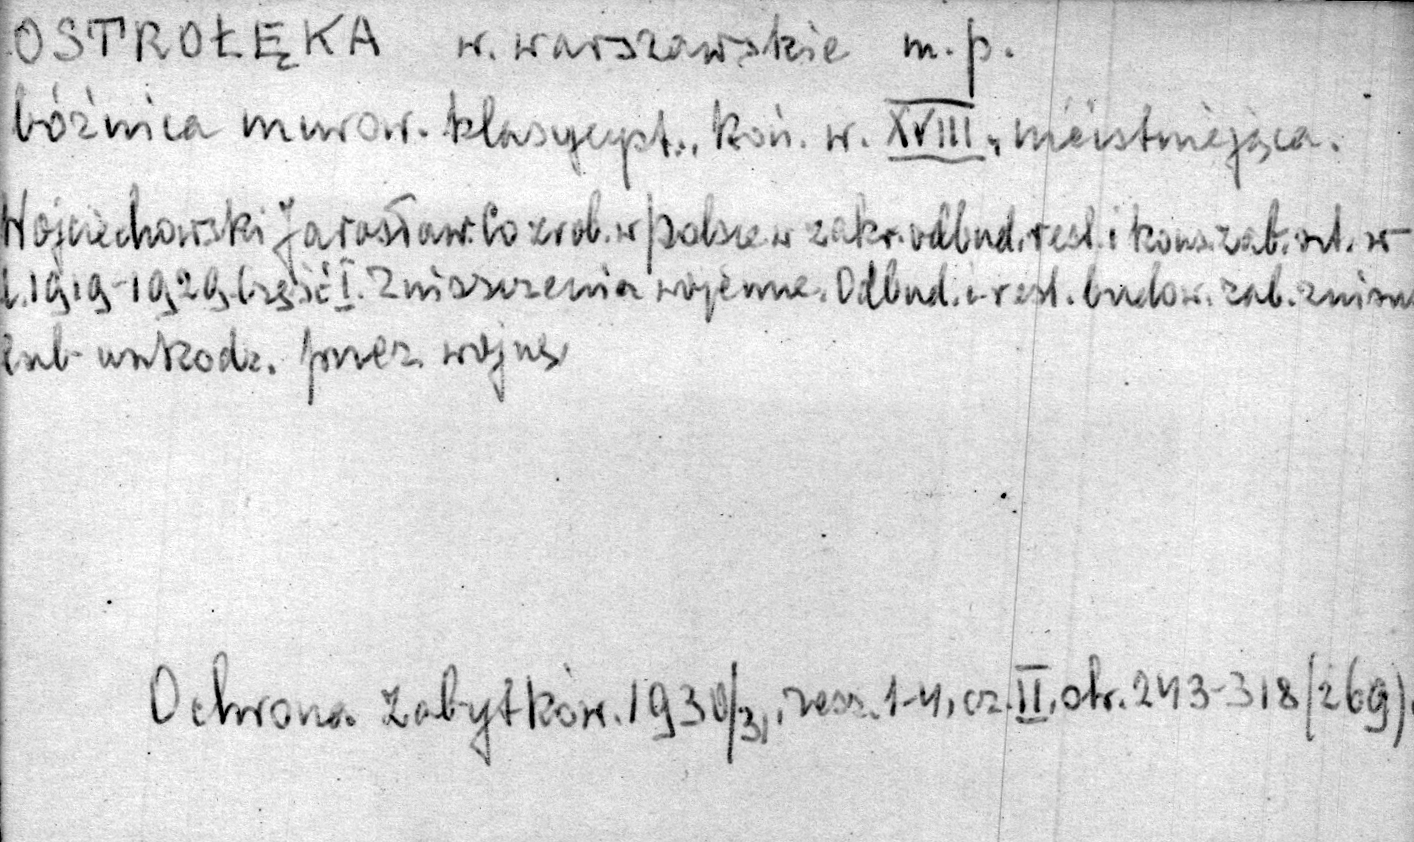 OSTROŁĘKA w. warszawskie m.p.
bóźnica murow. klasycyst., koń. w. XVIII, nieistniejąca.
Wojciechowski Jarosław. Co zrob. w Polsce w zakr. odbud. rest. i kons. zab. szt. w
l. 1919-1929. Część I. Zniszczenia wojenne. Odbud. i rest. budow. zab. zniszcz
lub uszkodz. przez wojnę
Ochrona Zabytków. 1930/31, zesz. 1-4, cz. II, str. 243-318 (269).